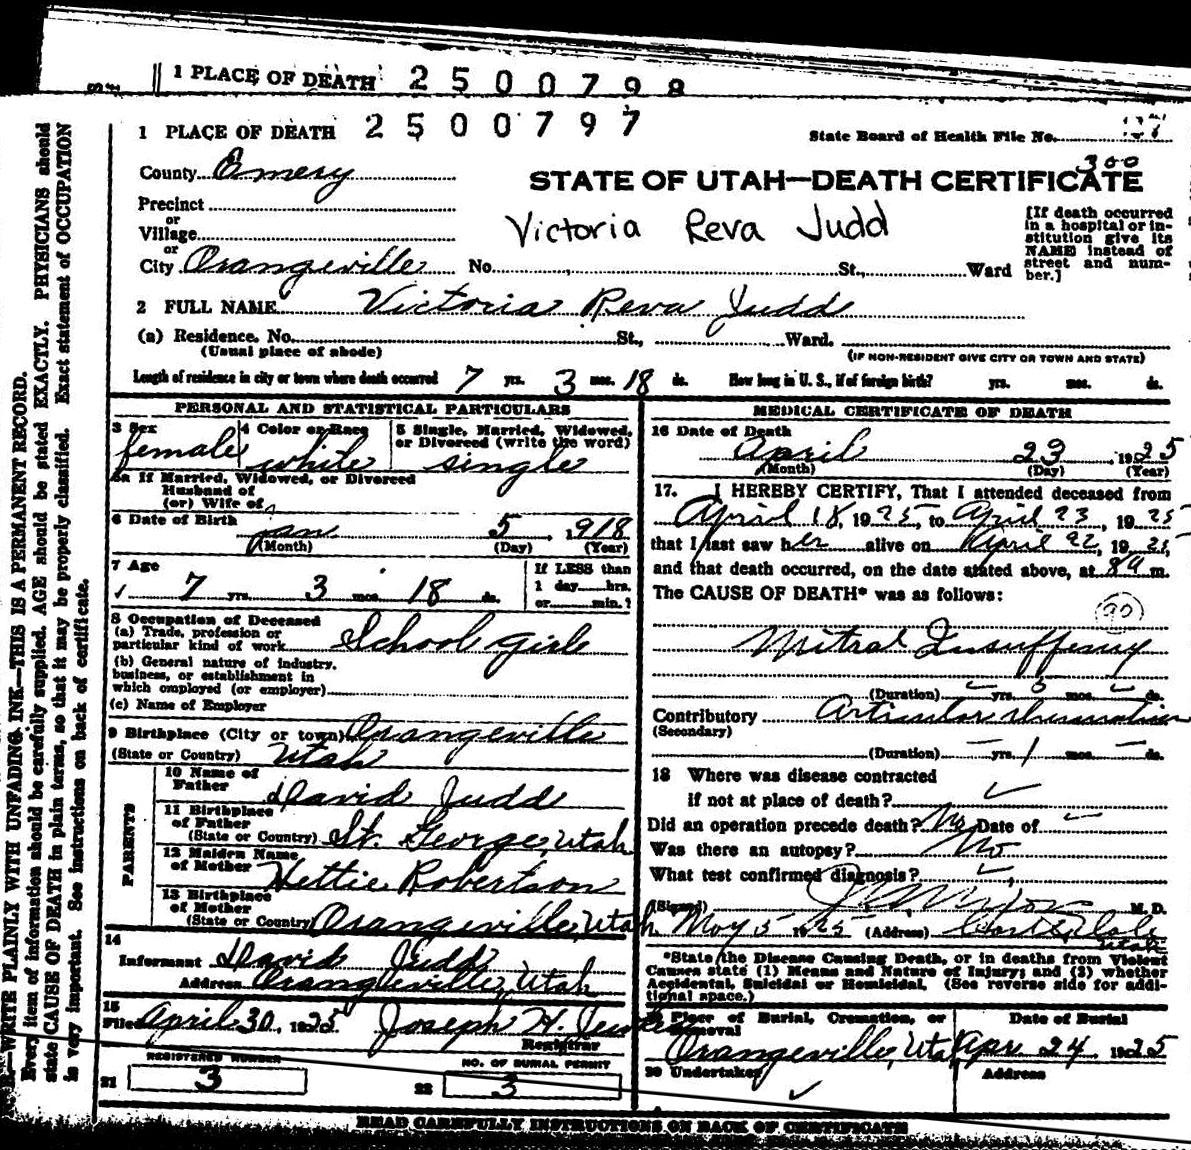 1 PLACE OF DEATH 2500798
1 PLACE OF DEATH 2500797
State Board of Health File No.
County Emery
300
STATE OF UTAH—DEATH CERTIFICATE
Precinct
or
Village
Victoria Reva Judd
[If death occurred in a hospital or institution give its NAME instead of street and number.]
or
City Orangeville No. St., Ward
2 FULL NAME Victoria Reva Judd
(a) Residence. No. St., Ward.
(Usual place of abode) (IF NON-RESIDENT GIVE CITY OR TOWN AND STATE)
Length of residence in city or town where death occurred 7 yrs. 3 mos. 18 ds. How long in U. S., if of foreign birth? yrs. mos. ds.
PERSONAL AND STATISTICAL PARTICULARS
3 Sex female
4 Color or Race white
5 Single, Married, Widowed, or Divorced (write the word) single
5a If Married, Widowed, or Divorced
Husband of
(or) Wife of
6 Date of Birth Jan 5, 1918
(Month) (Day) (Year)
7 Age 7 yrs. 3 mos. 18 ds.
If LESS than
1 day hrs.
or min.?
8 Occupation of Deceased
(a) Trade, profession or
particular kind of work School girl
(b) General nature of industry,
business, or establishment in
which employed (or employer)
(c) Name of Employer
9 Birthplace (City or town) Orangeville
(State or Country) Utah
PARENTS
10 Name of
Father David Judd
11 Birthplace
of Father
(State or Country) St. George, Utah
12 Maiden Name
of Mother Hettie Robertson
13 Birthplace
of Mother
(State or Country) Orangeville, Utah
14
Informant David Judd
Address Orangeville, Utah
15
Filed April 30, 1925 Joseph H.
Registrar
REGISTERED NUMBER
21 3
NO. OF BURIAL PERMIT
22 3
MEDICAL CERTIFICATE OF DEATH
16 Date of Death
April 23, 1925
(Month) (Day) (Year)
17. I HEREBY CERTIFY, That I attended deceased from
April 18, 1925, to April 23, 1925
that I last saw her alive on April 22, 1925,
and that death occurred, on the date stated above, at 8 a m.
The CAUSE OF DEATH* was as follows:
90
Mitral Insuffency
(Duration) yrs. mos. ds.
Contributory Articular rheumatism
(Secondary)
(Duration) yrs. 1 mos. ds.
18 Where was disease contracted
if not at place of death?
Did an operation precede death? No Date of
Was there an autopsy? No
What test confirmed diagnosis?
(Signed) M. D.
May 5 1925 (Address) Castle Dale
Utah
*State the Disease Causing Death, or in deaths from Violent
Causes state (1) Means and Nature of Injury; and (2) whether
Accidental, Suicidal or Homicidal. (See reverse side for addi-
tional space.)
19 Place of Burial, Cremation, or
Removal Date of Burial
Orangeville, Utah Apr 24 1925
20 Undertaker Address
READ CAREFULLY INSTRUCTIONS ON BACK OF CERTIFICATE
N. B.—WRITE PLAINLY WITH UNFADING INK—THIS IS A PERMANENT RECORD.
Every item of information should be carefully supplied. AGE should be stated EXACTLY. PHYSICIANS should
state CAUSE OF DEATH in plain terms, so that it may be properly classified. Exact statement of OCCUPATION
is very important. See instructions on back of certificate.